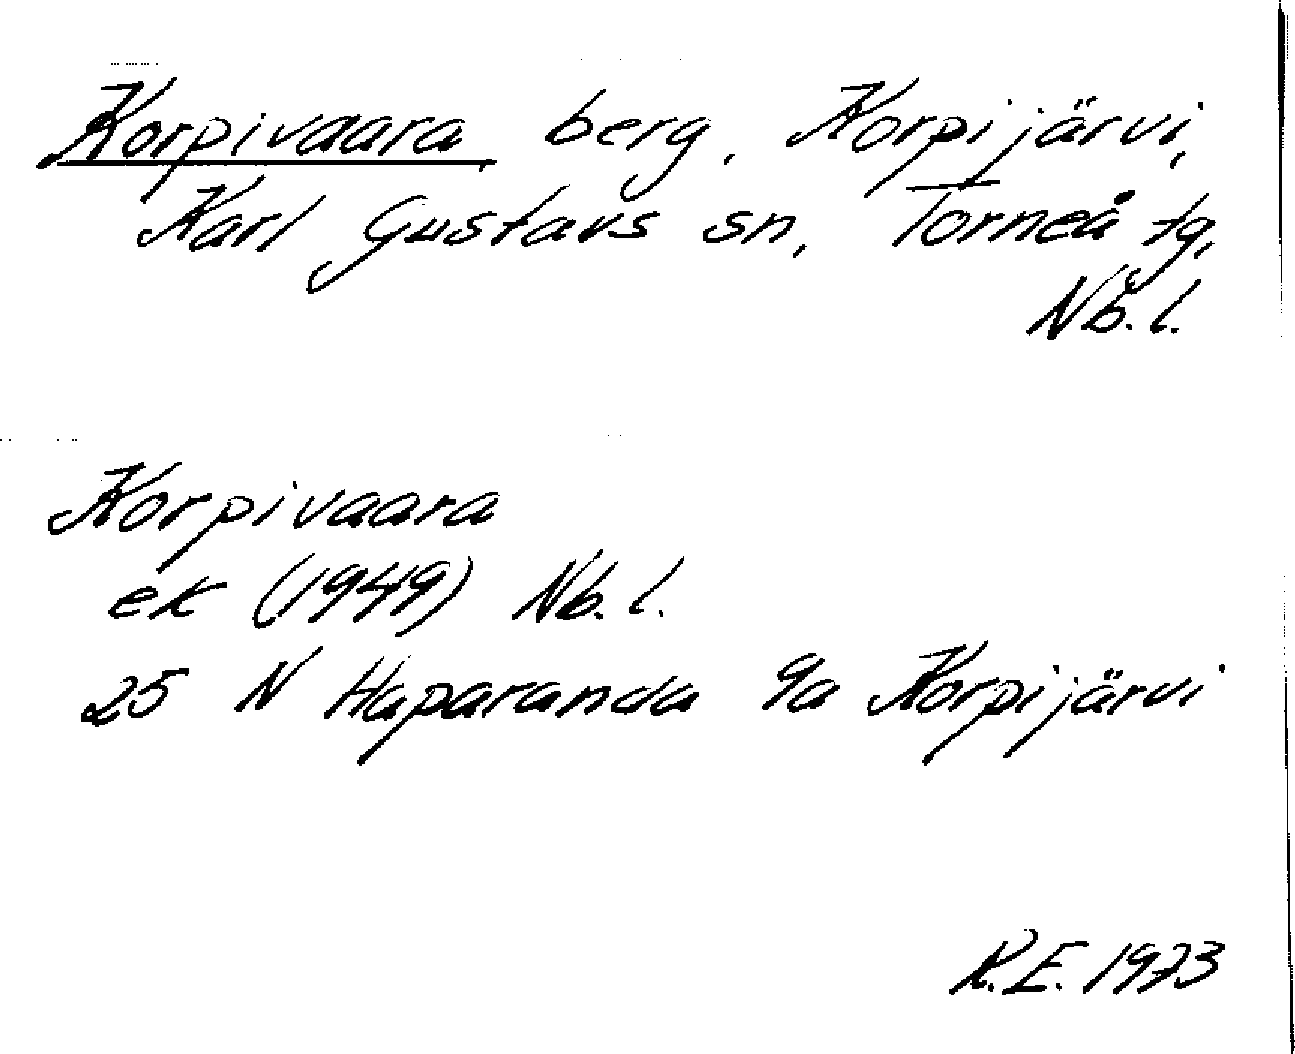 Korpivaara, berg, Korpijärvi,
Karl Gustavs sn, Torneå tg,
Nb. l.
Korpivaara
ek (1949) Nb. l.
25 N Haparanda 9a Korpijärvi
R.E. 1973